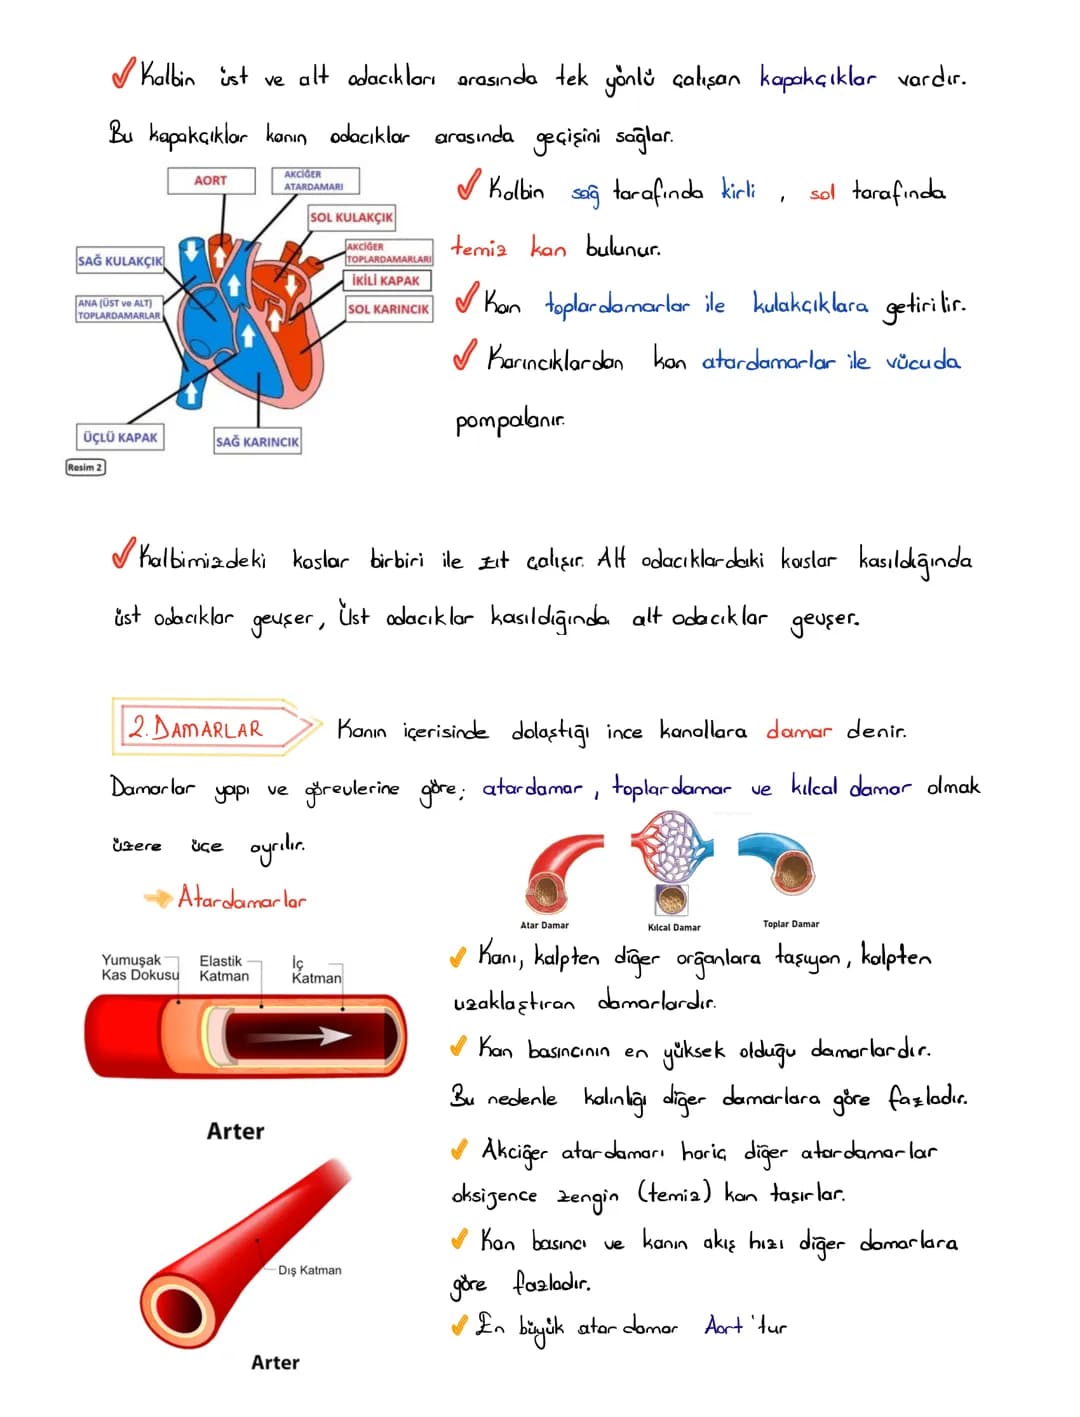 Kalbin üst ve alt odacıkları arasında tek yönlü çalışan kapakçıklar vardır.
Bu kapakçıklar kanın odacıklar arasında geçişini sağlar.
AORT
AKCİĞER
ATARDAMARI
SOL KULAKÇIK
AKCİĞER
TOPLARDAMARLARI
İKİLİ KAPAK
SOL KARINCIK
SAĞ KULAKÇIK
ANA (ÜST ve ALT)
TOPLARDAMARLAR
ÜÇLÜ KAPAK
SAĞ KARINCIK
Resim 2
Kalbin sağ tarafında kirli , sol tarafında
temiz kan bulunur.
Kan toplardamarlar ile kulakçıklara getirilir.
Karıncıklardan kan atardamarlar ile vücuda
pompalanır.
Kalbimizdeki kaslar birbiri ile zıt çalışır. Alt odacıklardaki kaslar kasıldığında
üst odacıklar gevşer, Üst odacıklar kasıldığında alt odacıklar gevşer.
2. DAMARLAR
Kanın içerisinde dolaştığı ince kanallara damar denir.
Damarlar yapı ve görevlerine göre; atardamar , toplardamar ve kılcal damar olmak
üzere üçe ayrılır.
Atar Damar
Kılcal Damar
Toplar Damar
Atardamarlar
Yumuşak
Kas Dokusu
Elastik
Katman
İç
Katman
Arter
Dış Katman
Arter
Kanı, kalpten diğer organlara taşıyan, kalpten
uzaklaştıran damarlardır.
Kan basıncının en yüksek olduğu damarlardır.
Bu nedenle kalınlığı diğer damarlara göre fazladır.
Akciğer atardamarı hariç diğer atardamarlar
oksijence zengin (temiz) kan taşırlar.
Kan basıncı ve kanın akış hızı diğer damarlara
göre fazladır.
En büyük atar damar Aort'tur